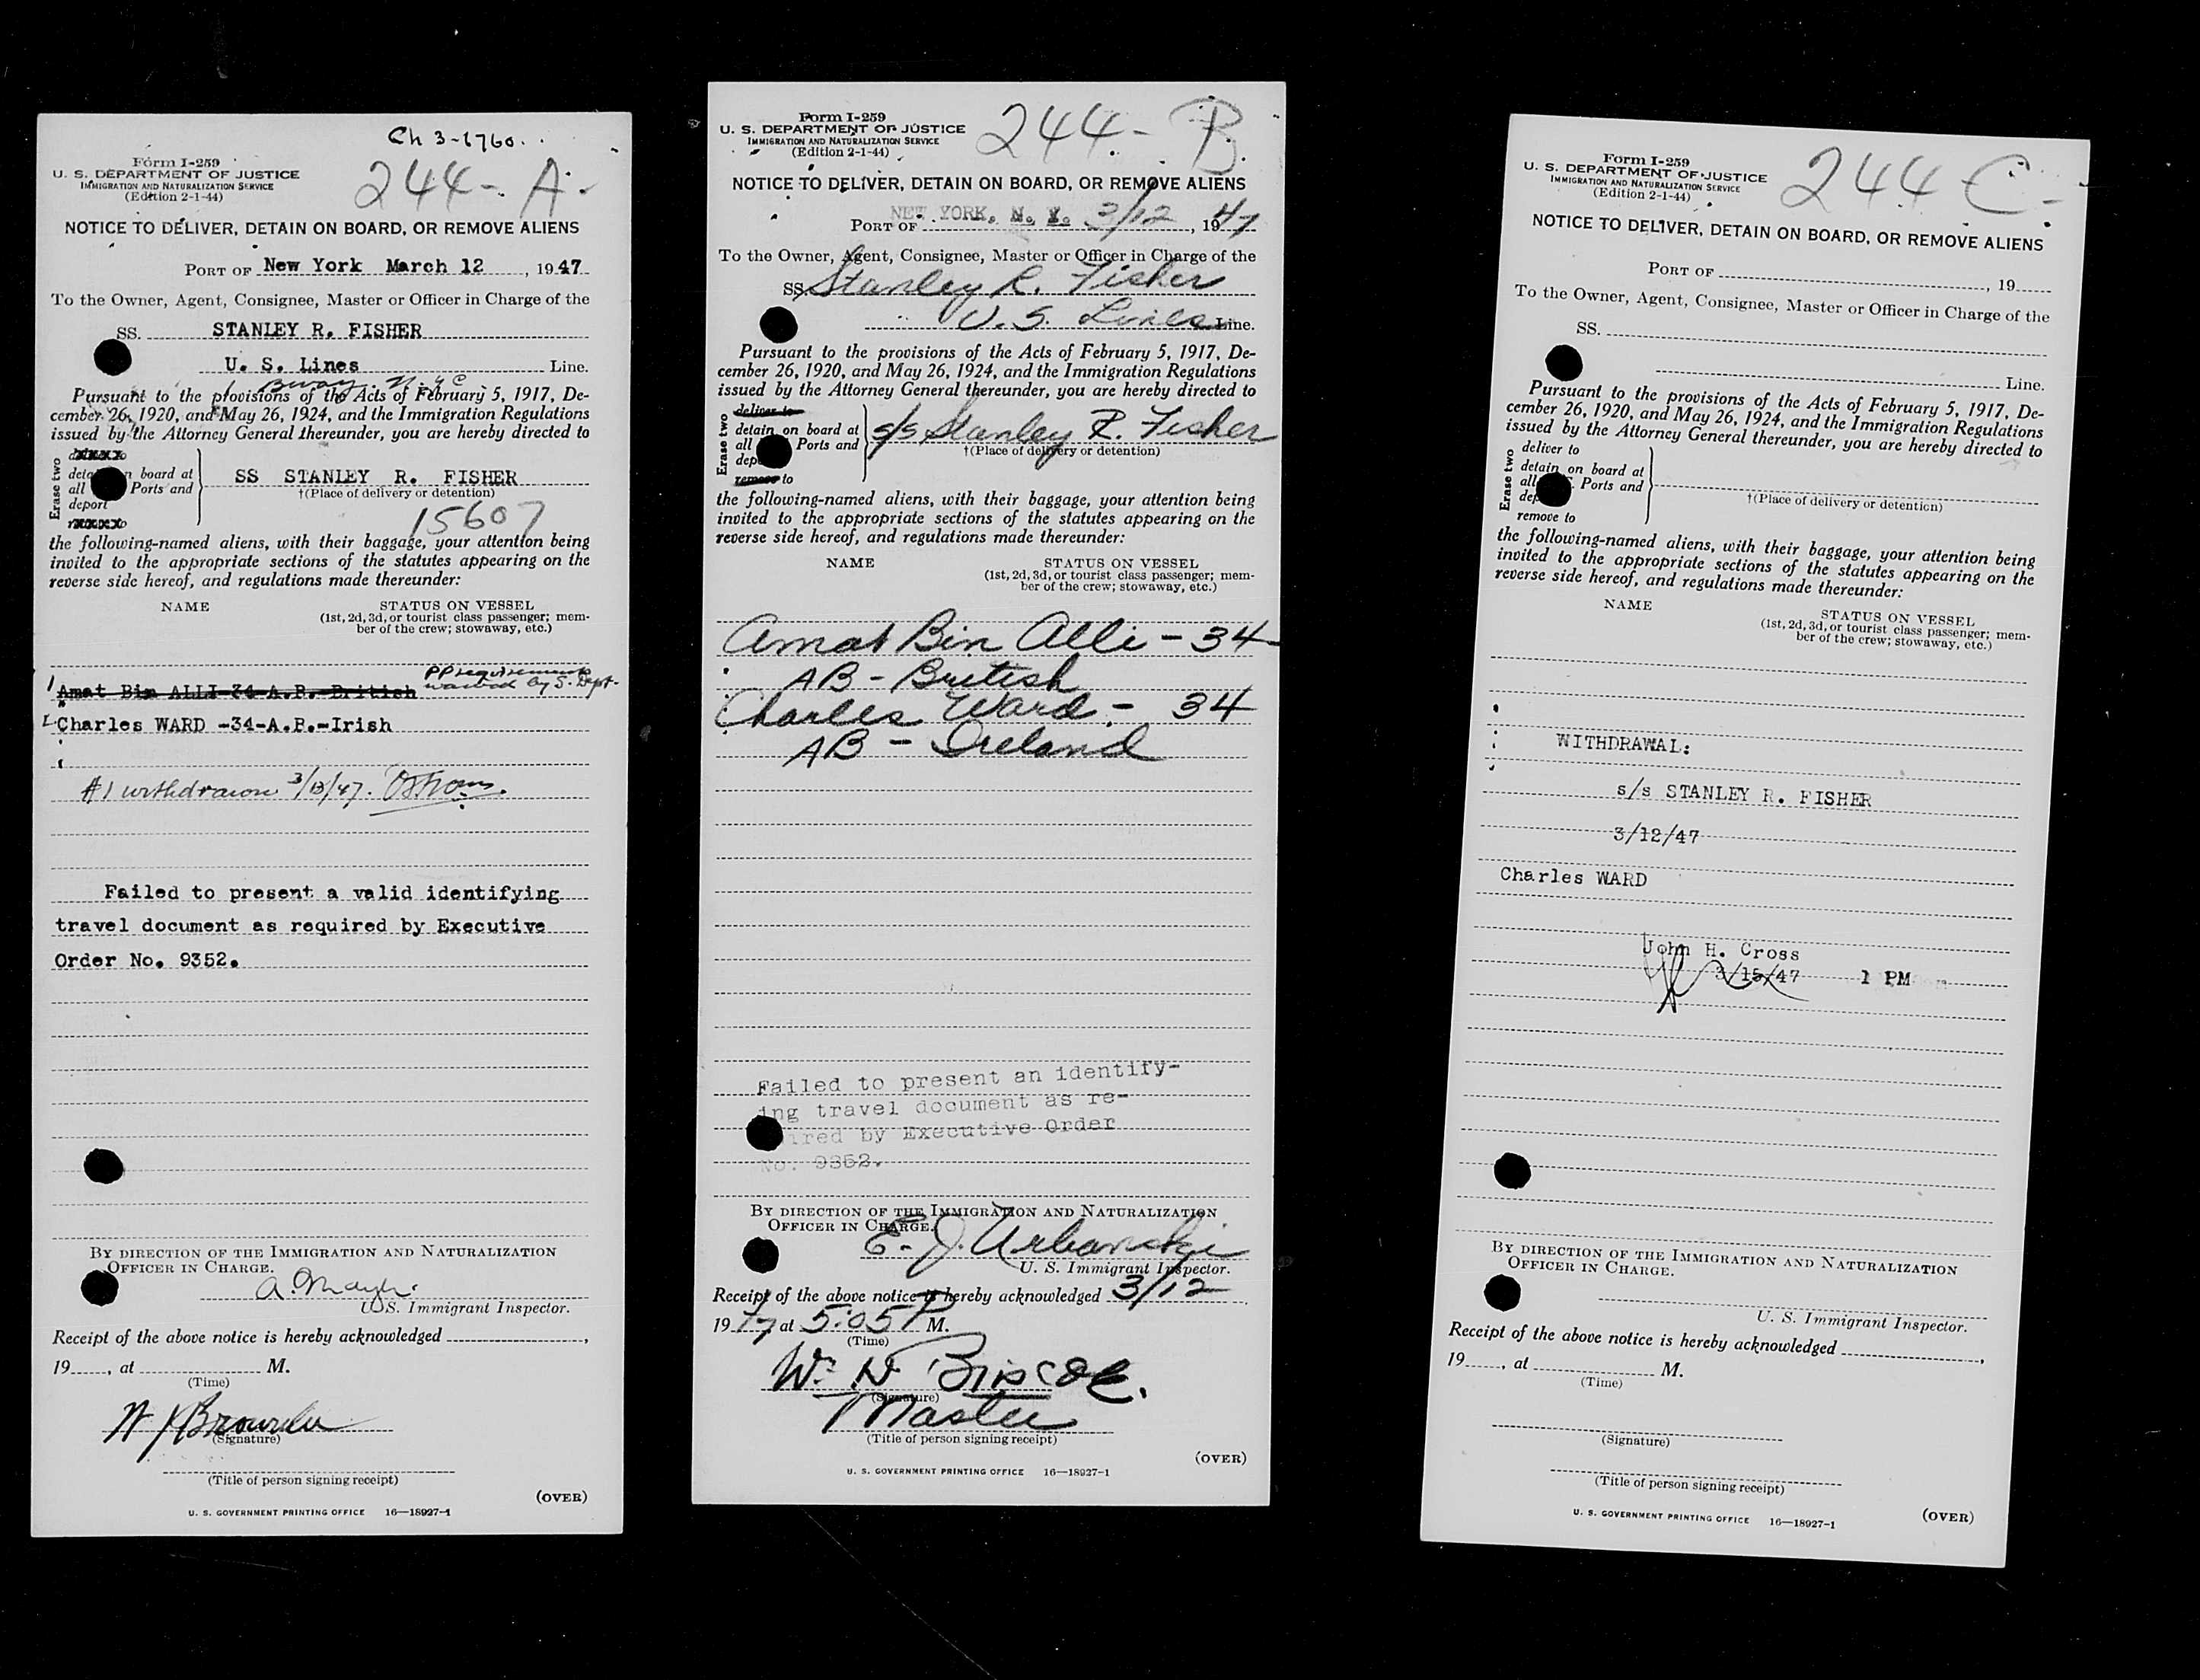 Ch 3-6760.
Form I-259
U. S. DEPARTMENT OF JUSTICE
IMMIGRATION AND NATURALIZATION SERVICE
(Edition 2-1-44)
244-A-
NOTICE TO DELIVER, DETAIN ON BOARD, OR REMOVE ALIENS
PORT OF New York March 12, 1947
To the Owner, Agent, Consignee, Master or Officer in Charge of the
SS. STANLEY R. FISHER
U. S. Lines Line.
1 Bway N.Y.C
Pursuant to the provisions of the Acts of February 5, 1917, De-
cember 26, 1920, and May 26, 1924, and the Immigration Regulations
issued by the Attorney General thereunder, you are hereby directed to
Erase two
detain on board at
all Ports and
deport
SS STANLEY R. FISHER
†(Place of delivery or detention)
15607
the following-named aliens, with their baggage, your attention being
invited to the appropriate sections of the statutes appearing on the
reverse side hereof, and regulations made thereunder:
NAME
STATUS ON VESSEL
(1st, 2d, 3d, or tourist class passenger; mem-
ber of the crew; stowaway, etc.)
PP requirements
1 Amat Bin ALLI-34-A.B.-British waived by S. Dept.
2 Charles WARD -34-A.B.-Irish
#1 withdrawn 3/13/47.
Failed to present a valid identifying
travel document as required by Executive
Order No. 9352.
BY DIRECTION OF THE IMMIGRATION AND NATURALIZATION
OFFICER IN CHARGE.
U. S. Immigrant Inspector.
Receipt of the above notice is hereby acknowledged ,
19 , at M.
(Time)
(Signature)
(Title of person signing receipt)
(OVER)
U. S. GOVERNMENT PRINTING OFFICE 16—18927-1
Form I-259
U. S. DEPARTMENT OF JUSTICE
IMMIGRATION AND NATURALIZATION SERVICE
(Edition 2-1-44)
244-B.
NOTICE TO DELIVER, DETAIN ON BOARD, OR REMOVE ALIENS
PORT OF NEW YORK, N. Y. 3/12, 1947
To the Owner, Agent, Consignee, Master or Officer in Charge of the
SS Stanley R. Fisher
U.S. Lines Line.
Pursuant to the provisions of the Acts of February 5, 1917, De-
cember 26, 1920, and May 26, 1924, and the Immigration Regulations
issued by the Attorney General thereunder, you are hereby directed to
Erase two
deliver to
detain on board at
all Ports and
remove to
s/s Stanley R. Fisher
†(Place of delivery or detention)
the following-named aliens, with their baggage, your attention being
invited to the appropriate sections of the statutes appearing on the
reverse side hereof, and regulations made thereunder:
NAME
STATUS ON VESSEL
(1st, 2d, 3d, or tourist class passenger; mem-
ber of the crew; stowaway, etc.)
Amat Bin Alli - 34
AB - British
Charles Ward - 34
AB - Ireland
Failed to present an identify-
ing travel document as re-
ired by Executive Order
No. 9352.
BY DIRECTION OF THE IMMIGRATION AND NATURALIZATION
OFFICER IN CHARGE.
E. J. Urbanski
U. S. Immigrant Inspector.
Receipt of the above notice is hereby acknowledged 3/12
1947 at 5:05 P M.
(Time)
Wm N Briscoe.
(Signature)
Master
(Title of person signing receipt)
(OVER)
U. S. GOVERNMENT PRINTING OFFICE 16—18927-1
Form I-259
U. S. DEPARTMENT OF JUSTICE
IMMIGRATION AND NATURALIZATION SERVICE
(Edition 2-1-44)
244 C-
NOTICE TO DELIVER, DETAIN ON BOARD, OR REMOVE ALIENS
PORT OF , 19
To the Owner, Agent, Consignee, Master or Officer in Charge of the
SS.
Line.
Pursuant to the provisions of the Acts of February 5, 1917, De-
cember 26, 1920, and May 26, 1924, and the Immigration Regulations
issued by the Attorney General thereunder, you are hereby directed to
Erase two
deliver to
detain on board at
all Ports and
remove to
†(Place of delivery or detention)
the following-named aliens, with their baggage, your attention being
invited to the appropriate sections of the statutes appearing on the
reverse side hereof, and regulations made thereunder:
NAME
STATUS ON VESSEL
(1st, 2d, 3d, or tourist class passenger; mem-
ber of the crew; stowaway, etc.)
WITHDRAWAL:
s/s STANLEY R. FISHER
3/12/47
Charles WARD
John H. Cross
3/15/47 1 PM
BY DIRECTION OF THE IMMIGRATION AND NATURALIZATION
OFFICER IN CHARGE.
U. S. Immigrant Inspector.
Receipt of the above notice is hereby acknowledged ,
19 , at M.
(Time)
(Signature)
(Title of person signing receipt)
(OVER)
U. S. GOVERNMENT PRINTING OFFICE 16—18927-1